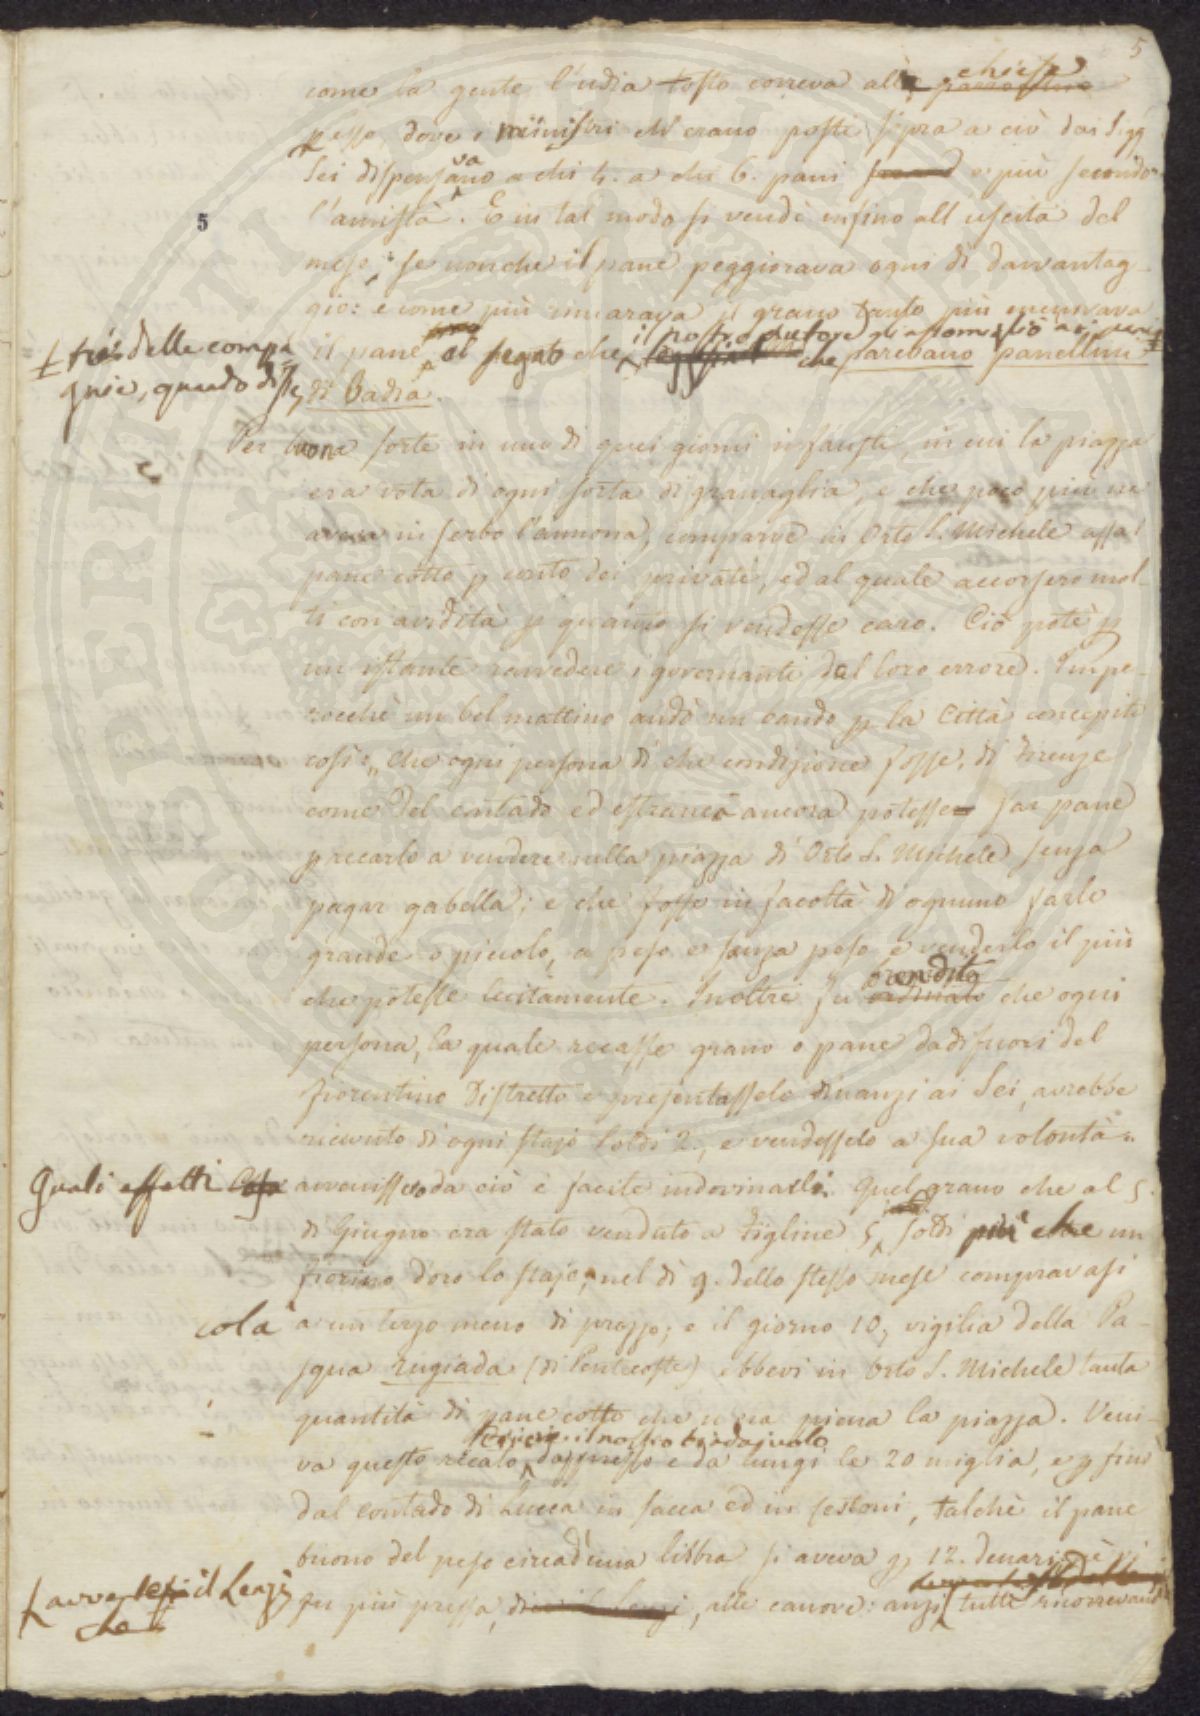 5
come la gente l'udia tosto correva alle chiese
stesse, dove i ministri ch'erano posti sopra a ciò dai Sigg
Sei dispensavano a chi 4. a chi 6. pani e più secondo
l'amistà. E in tal modo si vendè insino all'uscita del
5
mese; se nonché il pane peggiorava ogni dì davvantag-
gio: e come più rincarava il grano tanto più menomava
il pane, al segno che il nostro autore gli assomigliò ai pane-
tris delle compa
gnie, quando disse che parevano panellini
di Badia.
Per buona sorte in uno di quei giorni infausti, in cui la piazza
era vota di ogni sorta di granaglia, e che poco più ne
aveva in serbo l'annona, comparve in Orto S. Michele assai
pane cotto p conto dei privati, ed al quale accorsero mol-
ti con avidità p quanto si vendesse caro. Ciò potè p
un istante ravvedere i governanti dal loro errore. Impe-
rocchè un bel mattino andò un bando p la Città concepito
così: „ che ogni persona di che condizione fosse, di Firenze
come del contado ed estranei ancora potesse far pane
e recarlo a vendere sulla piazza di Orto S. Michele senza
pagar gabella; e che fosse in facoltà di ognuno farlo
grande o piccolo, a peso e senza peso e venderlo il più
che potesse lecitamente. Inoltre fu bandito ordinato che ogni
persona, la quale recasse grano o pane da di fuori del
Fiorentino Distretto e presentasselo dinanzi ai Sei, avrebbe
ricevuto di ogni stajo Soldi 2., e vendesselo a sua volontà „
Quali effetti avvenissero da ciò è facile indovinarlo. Quel grano che al 5.
di Giugno era stato venduto a Figline 5. soldi più che un
fiorino d'oro lo stajo, nel dì 9. dello stesso mese compravasi
colà a un terzo meno di prezzo; e il giorno 10, vigilia della Pa-
squa rugiada (di Pentecoste) ebbevi in Orto S. Michele tanta
quantità di pane cotto che n'era piena la piazza. Veni-
scrive il nostro biadaiuolo
va questo recato, dappresso e da lungi le 20 miglia, e p fino
dal contado di Lucca in sacca ed in cestoni, talchè il pane
buono del peso circa d'una libbra si aveva p 12. denari; nè vi
avverte il Lenzi
che
fu più pressa, dice il Lenzi, alle canove: anzi tutti ricorrevano